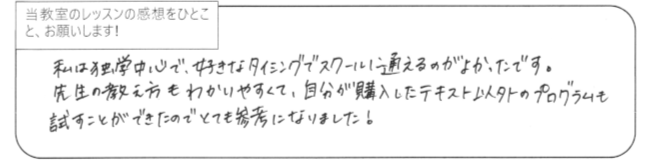 当教室のレッスンの感想をひとこ
と、お願いします！
私は独学中心で、好きなタイミングでスクールに通えるのがよかったです。
先生の教え方もわかりやすくて、自分が購入したテキスト以外のプログラムも
試すことができたのでとても参考になりました！